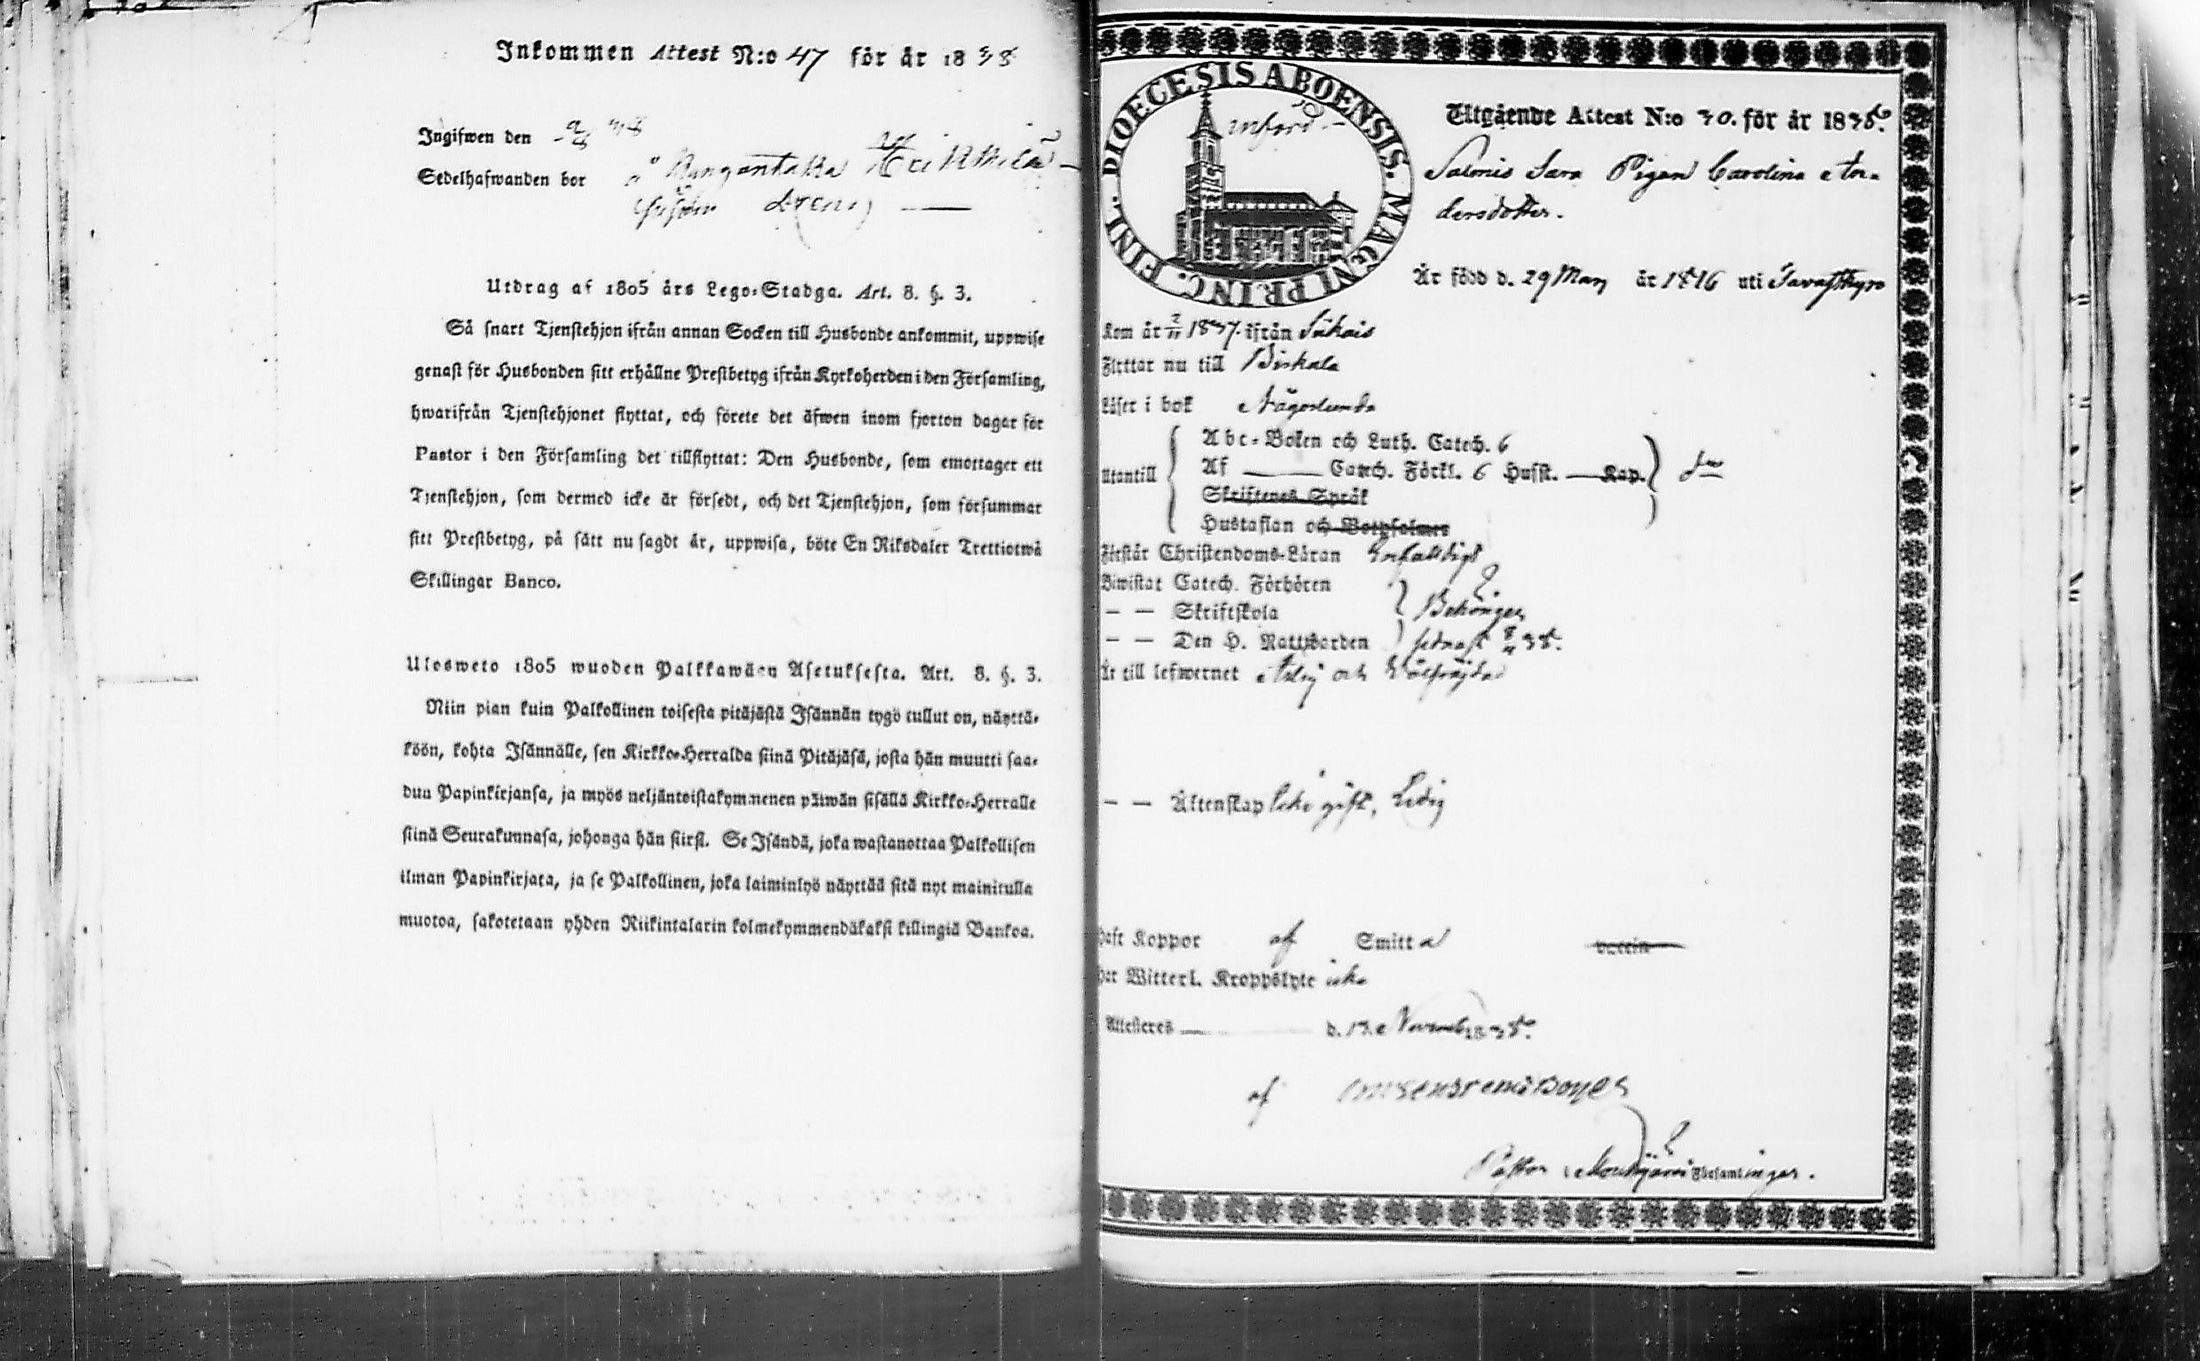 Inkommen Attest N:o 47 för år 1838
Ingifwen den
Sedelhafwanden bor å Kangantaka Heikkilä
dreng
Utdrag af 1805 års Lego-Stadga. Art. 8. §. 3.
Så snart Tjenstehjon ifrån annan Socken till Husbonde ankommit, uppwise
genast för Husbonden sitt erhållne Prestbetyg ifrån Kyrkoherden i den Församling,
hwarifrån Tjenstehjonet flyttat, och förete det äfwen inom fjorton dagar för
Pastor i den Församling det tillflyttat: Den Husbonde, som emottager ett
Tjenstehjon, som dermed icke är försedt, och det Tjenstehjon, som försummar
sitt Prestbetyg, på sätt nu sagdt är, uppwisa, böte En Riksdaler Trettiotwå
Skillingar Banco.
Ulosweto 1805 wuoden Palkkawäen Asetuksesta. Art. 8. §. 3.
Niin pian kuin Palkollinen toisesta pitäjästä Isännän tygö tullut on, näyttä-
köön, kohta Isännälle, sen Kirkko-Herralda siinä Pitäjäsä, josta hän muutti saa-
dun Papinkirjansa, ja myös neljäntoistakymmenen päiwän sisällä Kirkko-Herralle
siinä Seurakunnasa, johonga hän siirsi. Se Isändä, joka wastanottaa Palkollisen
ilman Papinkirjata, ja se Palkollinen, joka laiminlyö näyttää sitä nyt mainitulla
muotoa, sakotetaan yhden Riikintalarin kolmekymmendäkaksi killingiä Bankoa.
DIOECESIS ABOENSIS. MAGNI PRINC. FINL.
införd
Utgående Attest N:o 30. för år 1838.
Salmis Sara Pigan Carolina An-
dersdotter.
Är född d. 29 Maij år 1816 uti Tavastkyro
Kom år 1837 ifrån Suknis
Flyttar nu till Birkala
Läser i bok Någorlunda
Abc-Boken och Luth. Catech. 6
Utantill Af Catech. Förkl. 6 Husst. Kap.
Skriftenes Språk
Hustaflan och Botpsalmer
Förstår Christendoms-Läran Enfaldigt
Biwistat Catech. Förhören
— — Skriftskola Behörigen
— — Den H. Nattwarden sednast 38.
Är till lefwernet Ärlig och Wälfrejdad
— — Äktenskap Icke gift, Ledig
haft Koppor af Smitta vaccin
har Witterl. Kroppslyte icke
Attesteres d. 13 November 1838.
af
Pastor i Mouhijärvi Församlingar.